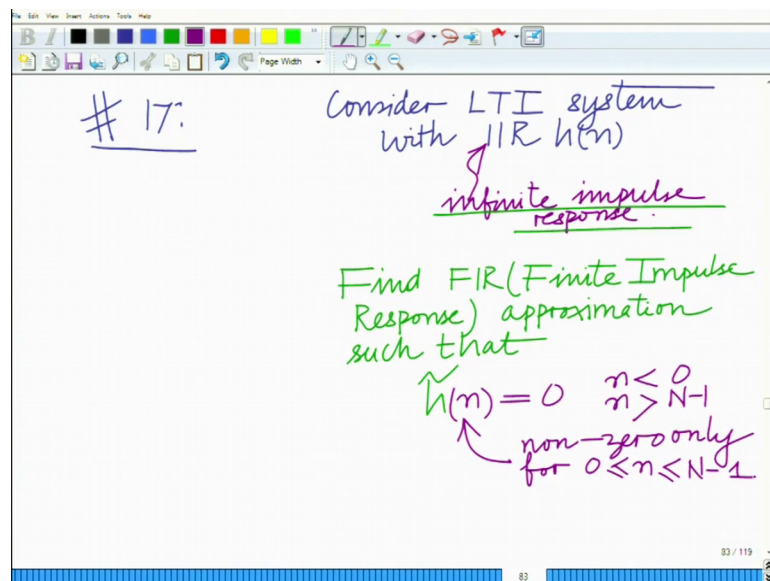 File Edit View Insert Actions Tools Help
B I
Page Width
# 17:
Consider LTI system
with IIR h(n)
infinite impulse
response.
Find FIR (Finite Impulse
Response) approximation
such that
h̃(n) = 0 n < 0
n > N-1
non-zero only
for 0 ≤ n ≤ N-1
83 / 119
83